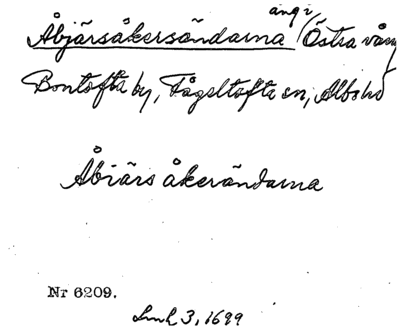 Åbjärsåkersändarna äng i Östra vång
Bontofta by, Fågeltofta sn, Albo hd
Åbiärs åkerändarna
Nr 6209.
Lmk 3, 1699